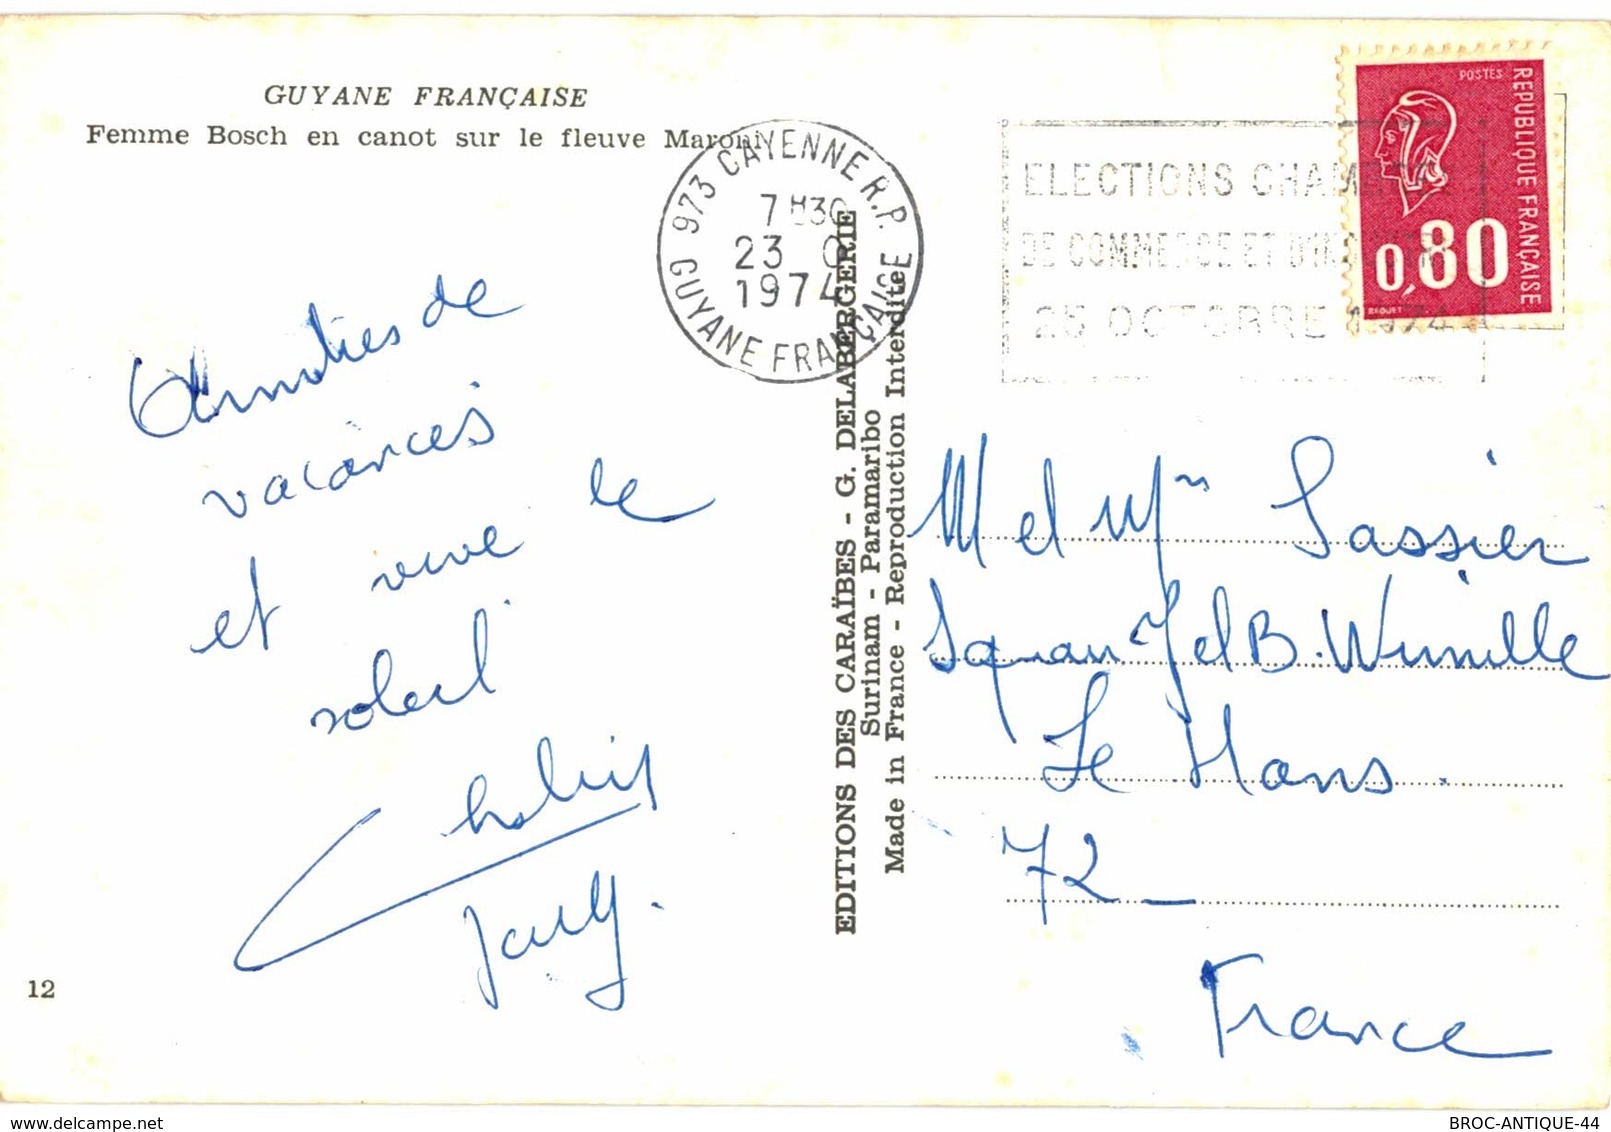 GUYANE FRANÇAISE
Femme Bosch en canot sur le fleuve Maroni
973 CAYENNE R.P.
7 H30
23
1974
GUYANE FRANÇAISE
ELECTIONS CHAM
DE COMMERCE ET D'IN
25 OCTOBRE 1974
POSTES
REPUBLIQUE FRANÇAISE
0,80
BEQUET
Amitiés de
vacances
et vive le
soleil
EDITIONS DES CARAÏBES - G. DELABERGERIE
Surinam - Paramaribo
Made in France - Reproduction Interdite
M et Mme Sassier
Square J et B. Wimille
Le Mans.
72
France
12
www.delcampe.net
BROC-ANTIQUE-44